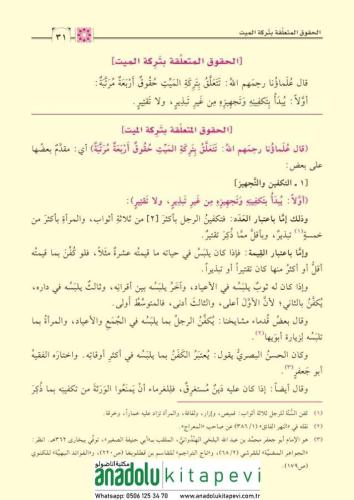 ٣١
الحقوق المتعلّقة بتركة الميت
[الحقوق المتعلّقة بتَرِكة الميت]
قال عُلَماؤنا رحمهم اللهُ: تَتَعَلَّقُ بِتَرِكَةِ المَيِّتِ حُقُوقٌ أَرْبَعَةٌ مُرَتَّبَةٌ:
أوّلاً: يُبدَأُ بِتكفينِهِ وَتَجهيزِهِ مِن غَيرِ تَبذِيرٍ، ولا تَقتِيرٍ.
[الحقوق المتعلقة بتَرِكة الميت]
(قال عُلماؤنا رحمهم اللهُ: تَتَعلَّقُ بِتَرِكَةِ المَيِّتِ حُقُوقٌ أَرْبَعَةٌ مُرَتَّبَةٌ) أي: مقدَّمٌ بعضُها
على بعض:
[١ ـ التكفين والتَّجهيز]
(أوّلاً: يُبدَأُ بِتكفينِهِ وَتَجهيزِهِ مِن غَيرِ تَبذِيرٍ، ولا تَقتِيرٍ):
وذلك إمّا باعتبار العَدَد: فتكفينُ الرجل بأكثرَ [٢] من ثلاثةِ أثواب، والمرأةِ بأكثرَ من
خمسةٍ(١) تبذيرٌ، وبأقلَّ ممّا ذُكِرَ تقتيرٌ.
وإمّا باعتبار القِيمة: فإذا كان يلبَسُ في حياته ما قيمتُه عشرةٌ مثلاً، فلو كُفِّنَ بما قيمتُه
أقلُّ أو أكثرُ منها كان تقتيراً أو تبذيراً.
وإذا كان له ثوبٌ يلبَسُه في الأعياد، وآخَرُ يلبَسُه بين أقرانِه، وثالثٌ يلبَسُه في داره،
يُكفَّنُ بالثاني؛ لأنَّ الأوّلَ أعلى، والثالثَ أدنى، فالمتوسِّطُ أولى.
وقال بعضُ قُدماء مشايخنا: يُكفَّنُ الرجلُ بما يلبَسُه في الجُمَعِ والأعياد، والمرأةُ بما
تلبَسُه لزيارة أبوَيها(٢).
وكان الحسنُ البصريُّ يقول: يُعتبَرُ الكَفَنُ بما يلبَسُه في أكثرِ أوقاتِه. واختارَه الفقيهُ
أبو جَعفرٍ(٣).
وقال أيضاً: إذا كان عليه دَينٌ مُستغرِقٌ، فللغُرماء أنْ يَمنَعُوا الوَرَثةَ من تكفينِه بما ذُكِرَ
(١) كفن السُّنَّة للرجل ثلاثة أثواب: قميص، وإزار، ولفافة، والمرأة تزاد عليه خماراً، وخرقة.
(٢) نقله في «النهر الفائق» (١/ ٣٨٦) عن صاحب «المعراج».
(٣) هو الإمام أبو جعفر محمّد بن عبد الله البلخي الهِنْدُوانيّ، الملقب بـ«أبي حنيفة الصغير»، توفّي ببخارى ٣٦٢هـ. انظر:
«الجواهر المضيّة» للقرشي (٢/ ٦٨)، و«تاج التراجم» للقاسم بن قطلوبغا (ص٢٢٠)، و«الفوائد البهيّة» للكنوي
(ص١٧٩).
مكتبة اناضولو
anadolu kitapevi
Whatsapp: 0506 125 34 70 www.anadolukitapevi.com.tr